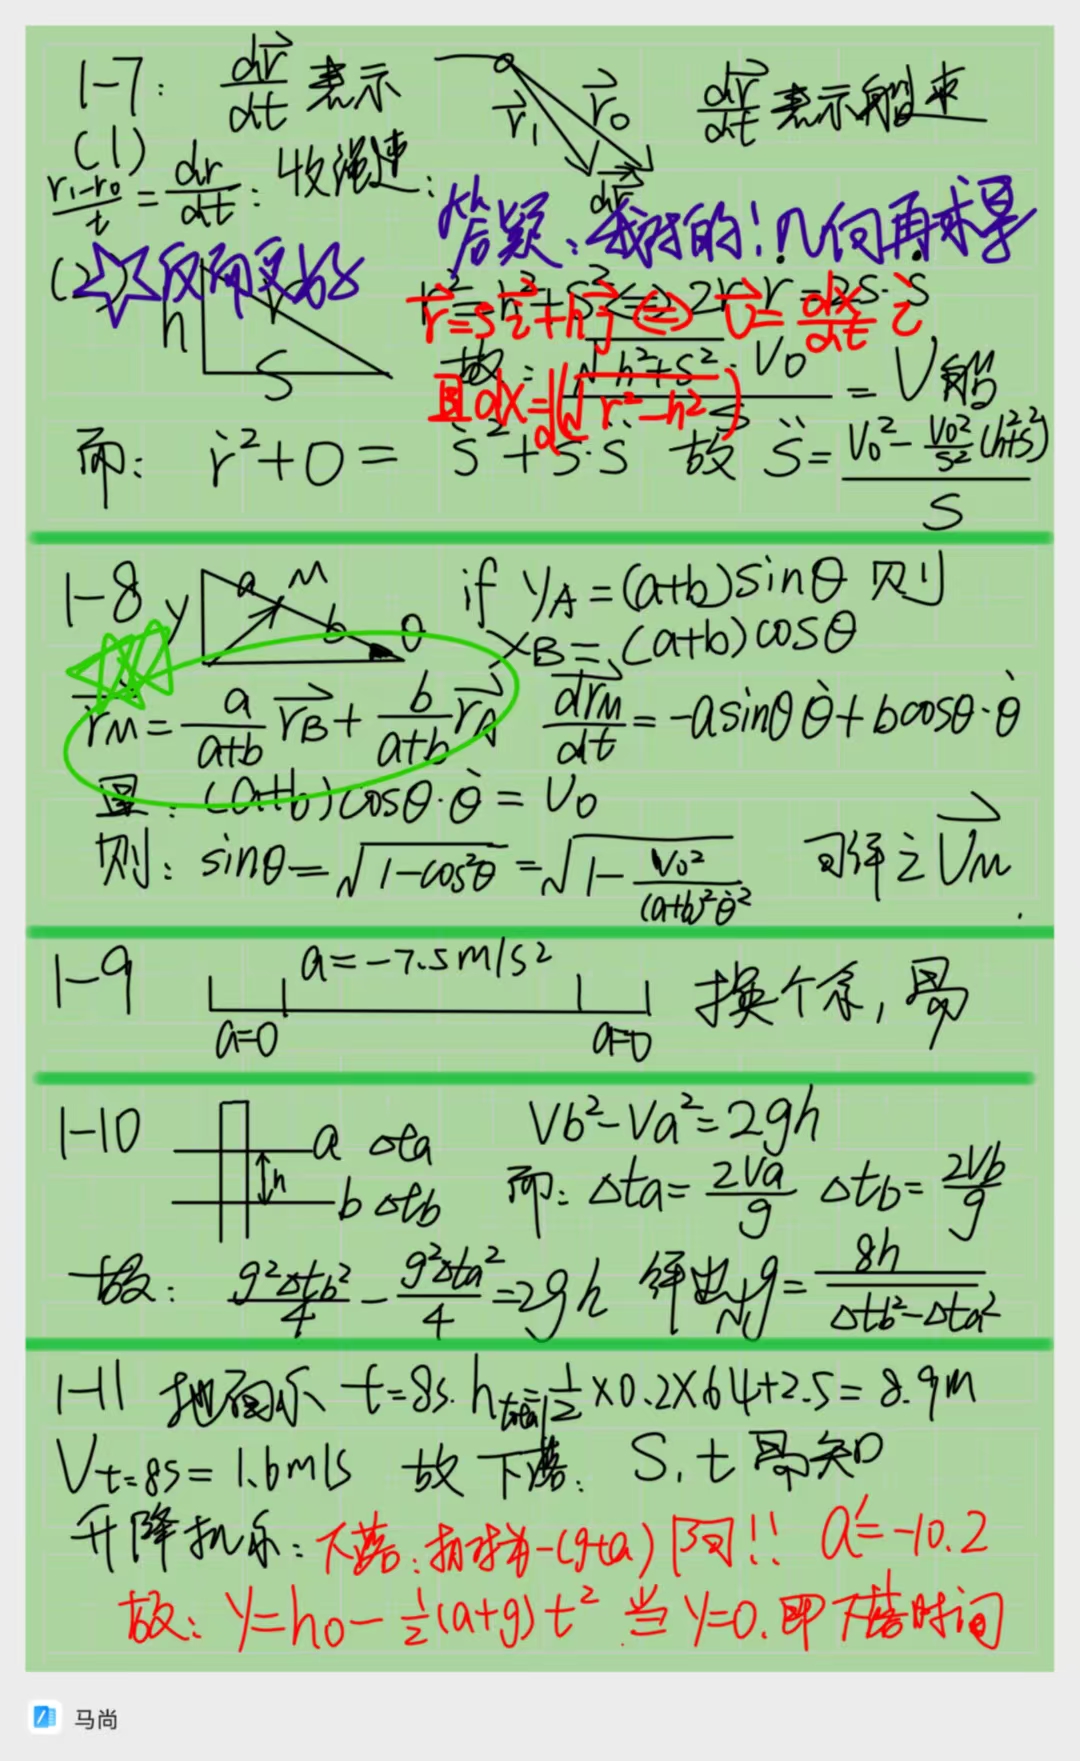 1-7: dr⃗/dt 表示 r⃗₁ r⃗₀ dr⃗/dt 表示船速
(1) (r₁-r₀)/t = dr/dt: 收绳速; dr⃗
答疑:我对的!几何再求导
(2) ☆反而更好 h r S
r² = h²+s² ⇔ 2r·ṙ = 2s·ṡ
r⃗=s i⃗+h j⃗ ⇔ v⃗=dx/dt i⃗
故: √(h²+s²)·V₀/S = V船
且dx=d(√(r²-h²))
而: ṙ²+0= ṡ²+s·s̈ 故 s̈=(V₀²-V₀²/s²(h²+s²))/S
1-8 y a M b θ if yA=(a+b)sinθ 则
xB=(a+b)cosθ
r⃗M=a/(a+b) r⃗B+b/(a+b) r⃗A dr⃗M/dt=-asinθ θ̇+bcosθ·θ̇
且:(a+b)cosθ·θ̇=V₀
则: sinθ=√(1-cos²θ)=√(1-V₀²/((a+b)²θ̇²)) 可得之V⃗M.
1-9 a=-7.5m/s² 换个系,易
a=0 a=0
1-10 a Δta Vb²-Va²=2gh
h b Δtb 而: Δta=2Va/g Δtb=2Vb/g
故: g²Δtb²/4-g²Δta²/4=2gh 得出g=8h/(Δtb²-Δta²)
1-11 地面系 t=8s. h total=1/2×0.2×64+2.5=8.9m
Vt=8s=1.6m/s 故下落: S,t易知
升降机系:下落:相对为-(g+a)向!! a'=-10.2
故: y=h₀-1/2(a+g)t² 当y=0.即下落时间
马尚